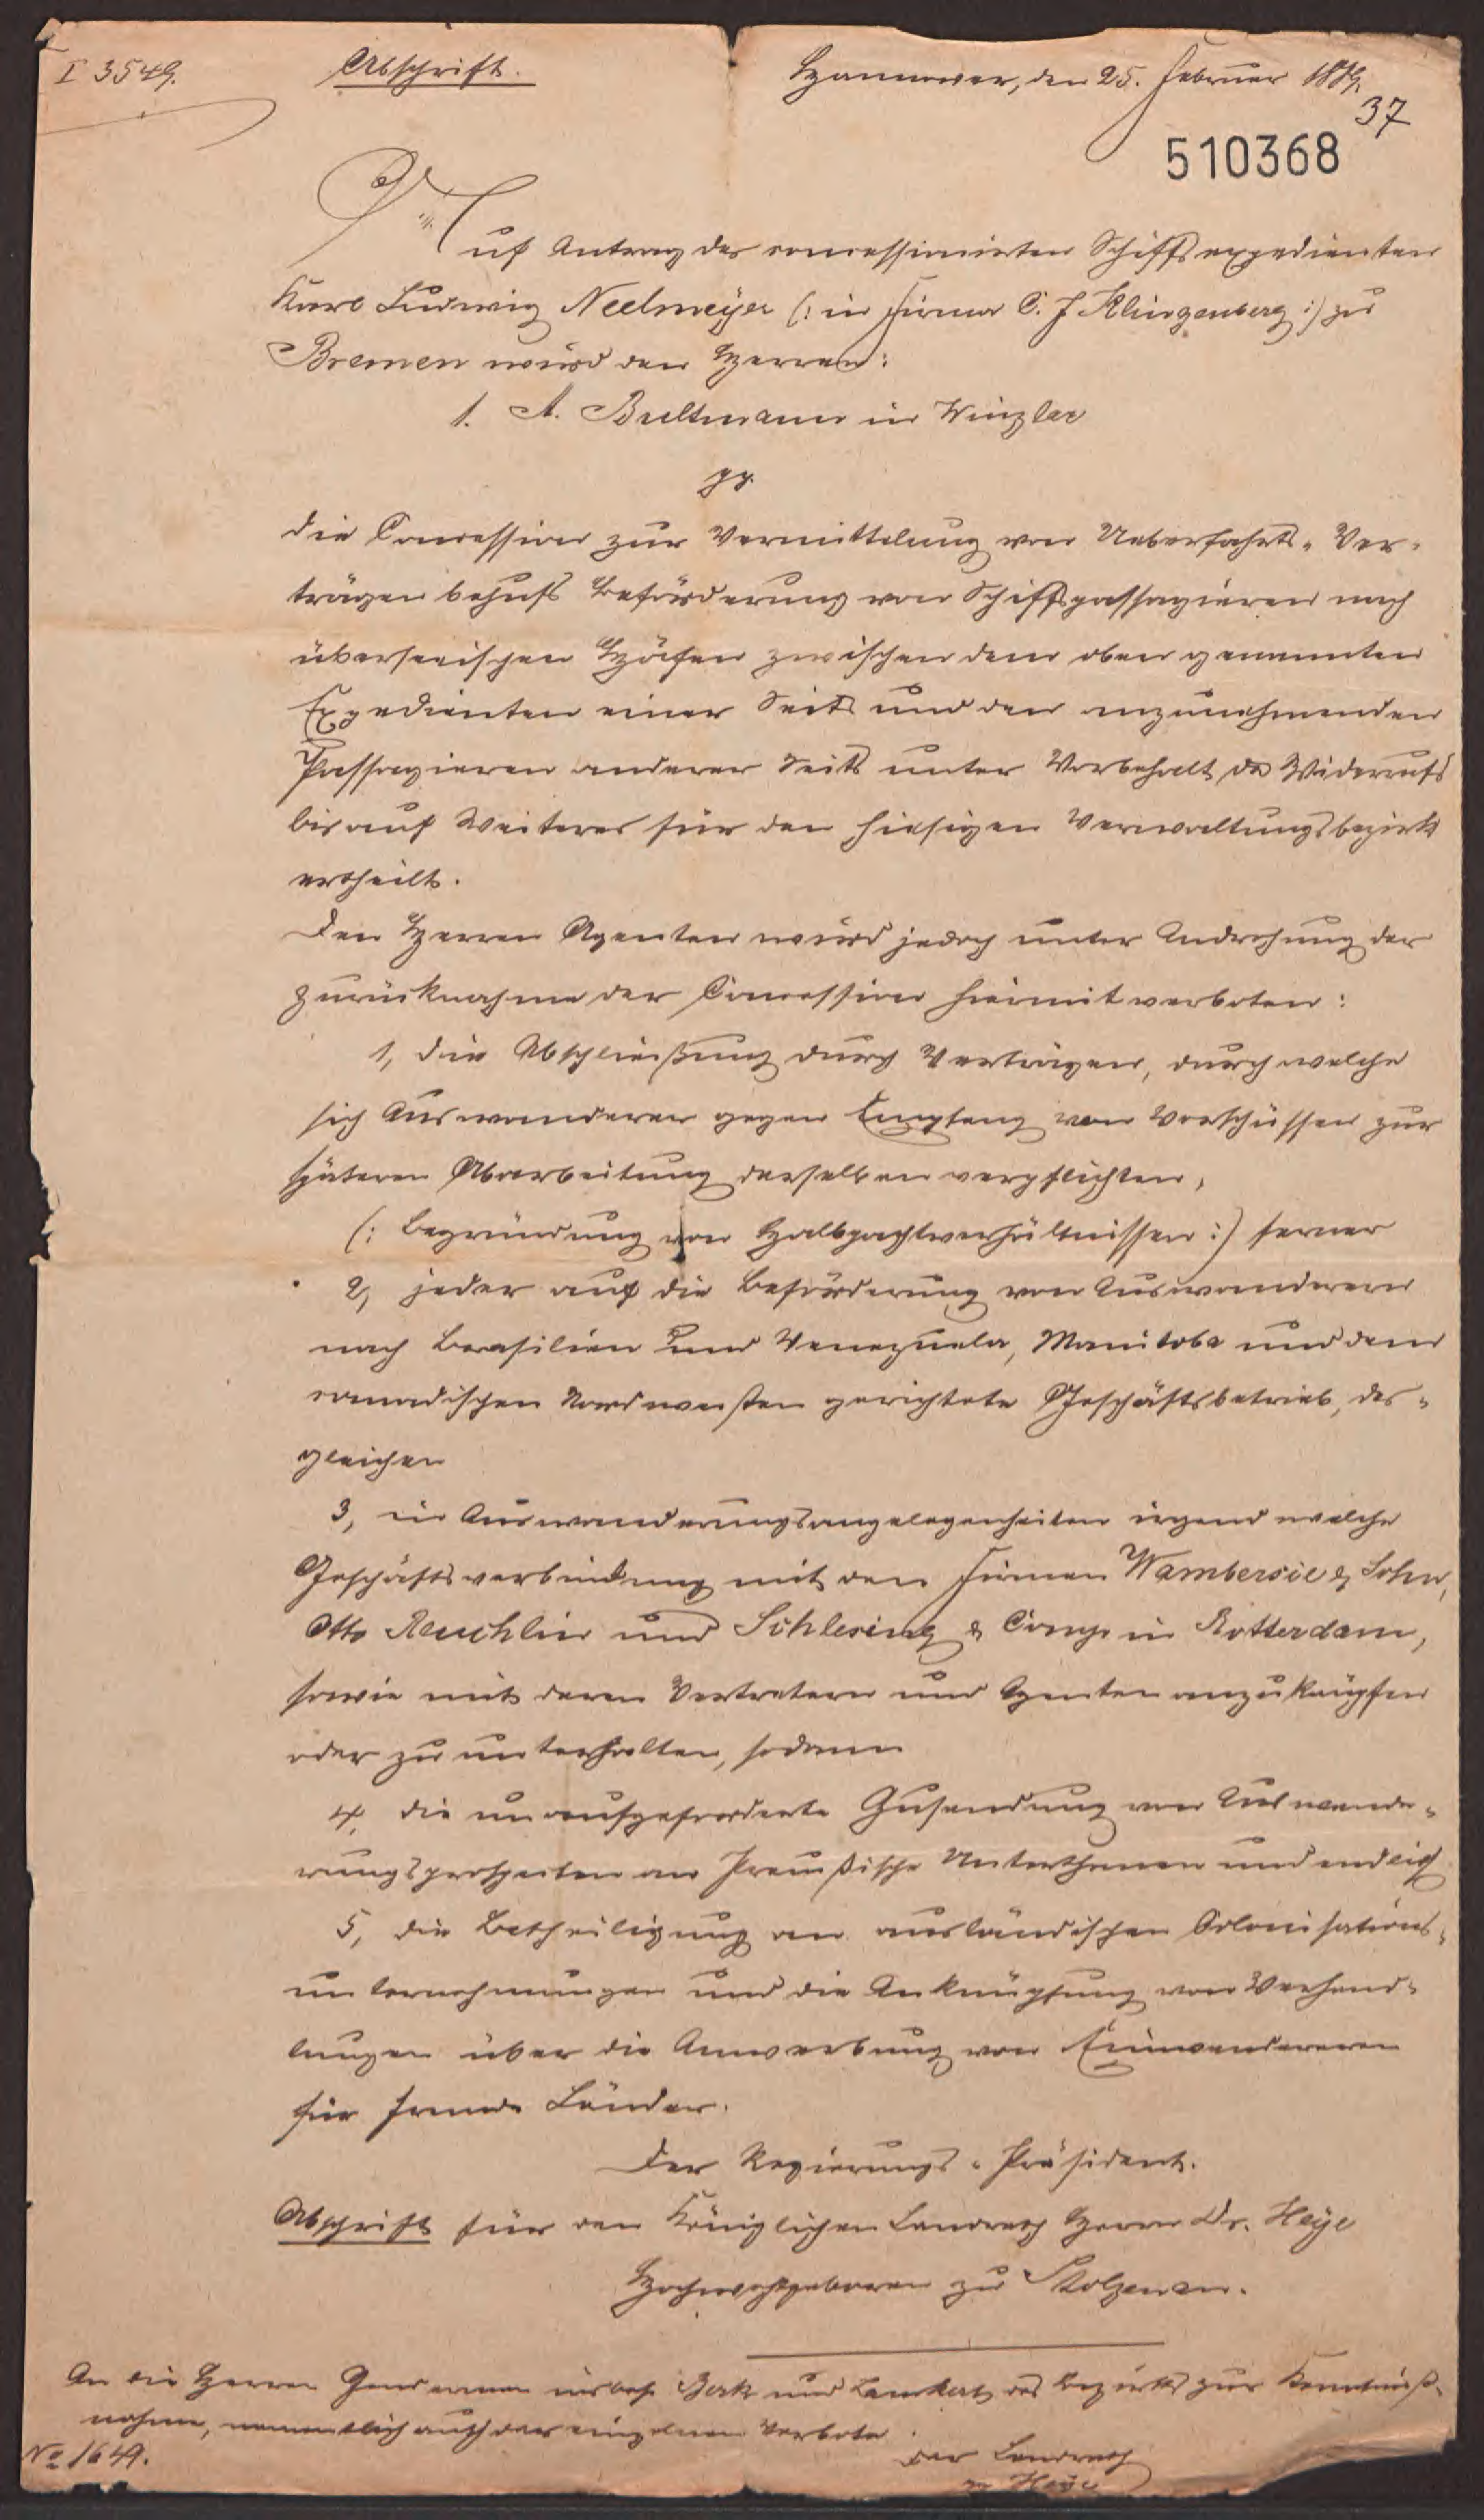 I 3549.
Abschrift.
Hannover, den 25. Februar
37
510368
Auf Antrag des concessionirten Schiffsexpedienten
Karl Ludwig Neelmeyer (: in Firma C. J Klingenberg :) zu
Bremen wird den Herren:
1. A. Bultmann in Winzlar
pp.
die Concession zur Vermittelung von Ueberfahrts-Ver-
trägen behufs Beförderung von Schiffspassagieren nach
überseeischen Häfen zwischen dem oben genannten
Expedienten einer Seits und den anzunehmenden
Passagieren anderer Seits unter Vorbehalt des Widerrufs
bis auf Weiteres für den hiesigen Verwaltungsbezirk
ertheilt.
Den Herren Agenten wird jedoch unter Androhung der
Zurücknahme der Concession hiermit verboten:
1, die Abschließung durch Verträgen, durch welche
sich Auswanderer gegen Empfang von Vorschüssen zur
späteren Abarbeitung derselben verpflichten,
(: Begründung von Halbpachtverhältnissen :) ferner
2, jeder auf die Beförderung von Auswanderern
nach Brasilien und Venezuela, Manitoba und dem
canadischen Nordwesten gerichtete Geschäftsbetrieb, des-
gleichen
3, in Auswanderungsangelegenheiten irgend welche
Geschäftsverbindung mit den Firmen Wambersie & Sohn,
Otto Reuchlin und Schlesing & Comp in Rotterdam,
sowie mit deren Vertretern und Agenten anzuknüpfen
oder zu unterhalten, sodann
4, die unaufgeforderte Zusendung von Auswande-
rungsprospecten an Preußische Unterthanen und endlich
5, die Betheiligung an ausländischen Colonisations-
unternehmungen und die Anknüpfung von Verhand-
lungen über die Anwerbung von Einwanderern
für fremde Länder.
Der Regierungs-Präsident.
Abschrift für den Königlichen Landrath Herrn Dr. Heye
Hochwohlgeboren zu Stolzenau.
An die Herren Gendarmen und des Bezirks zur Kenntniß-
nahme, namentlich auch der einzelnen Verbote.
No 1649.
Der Landrath
Heye